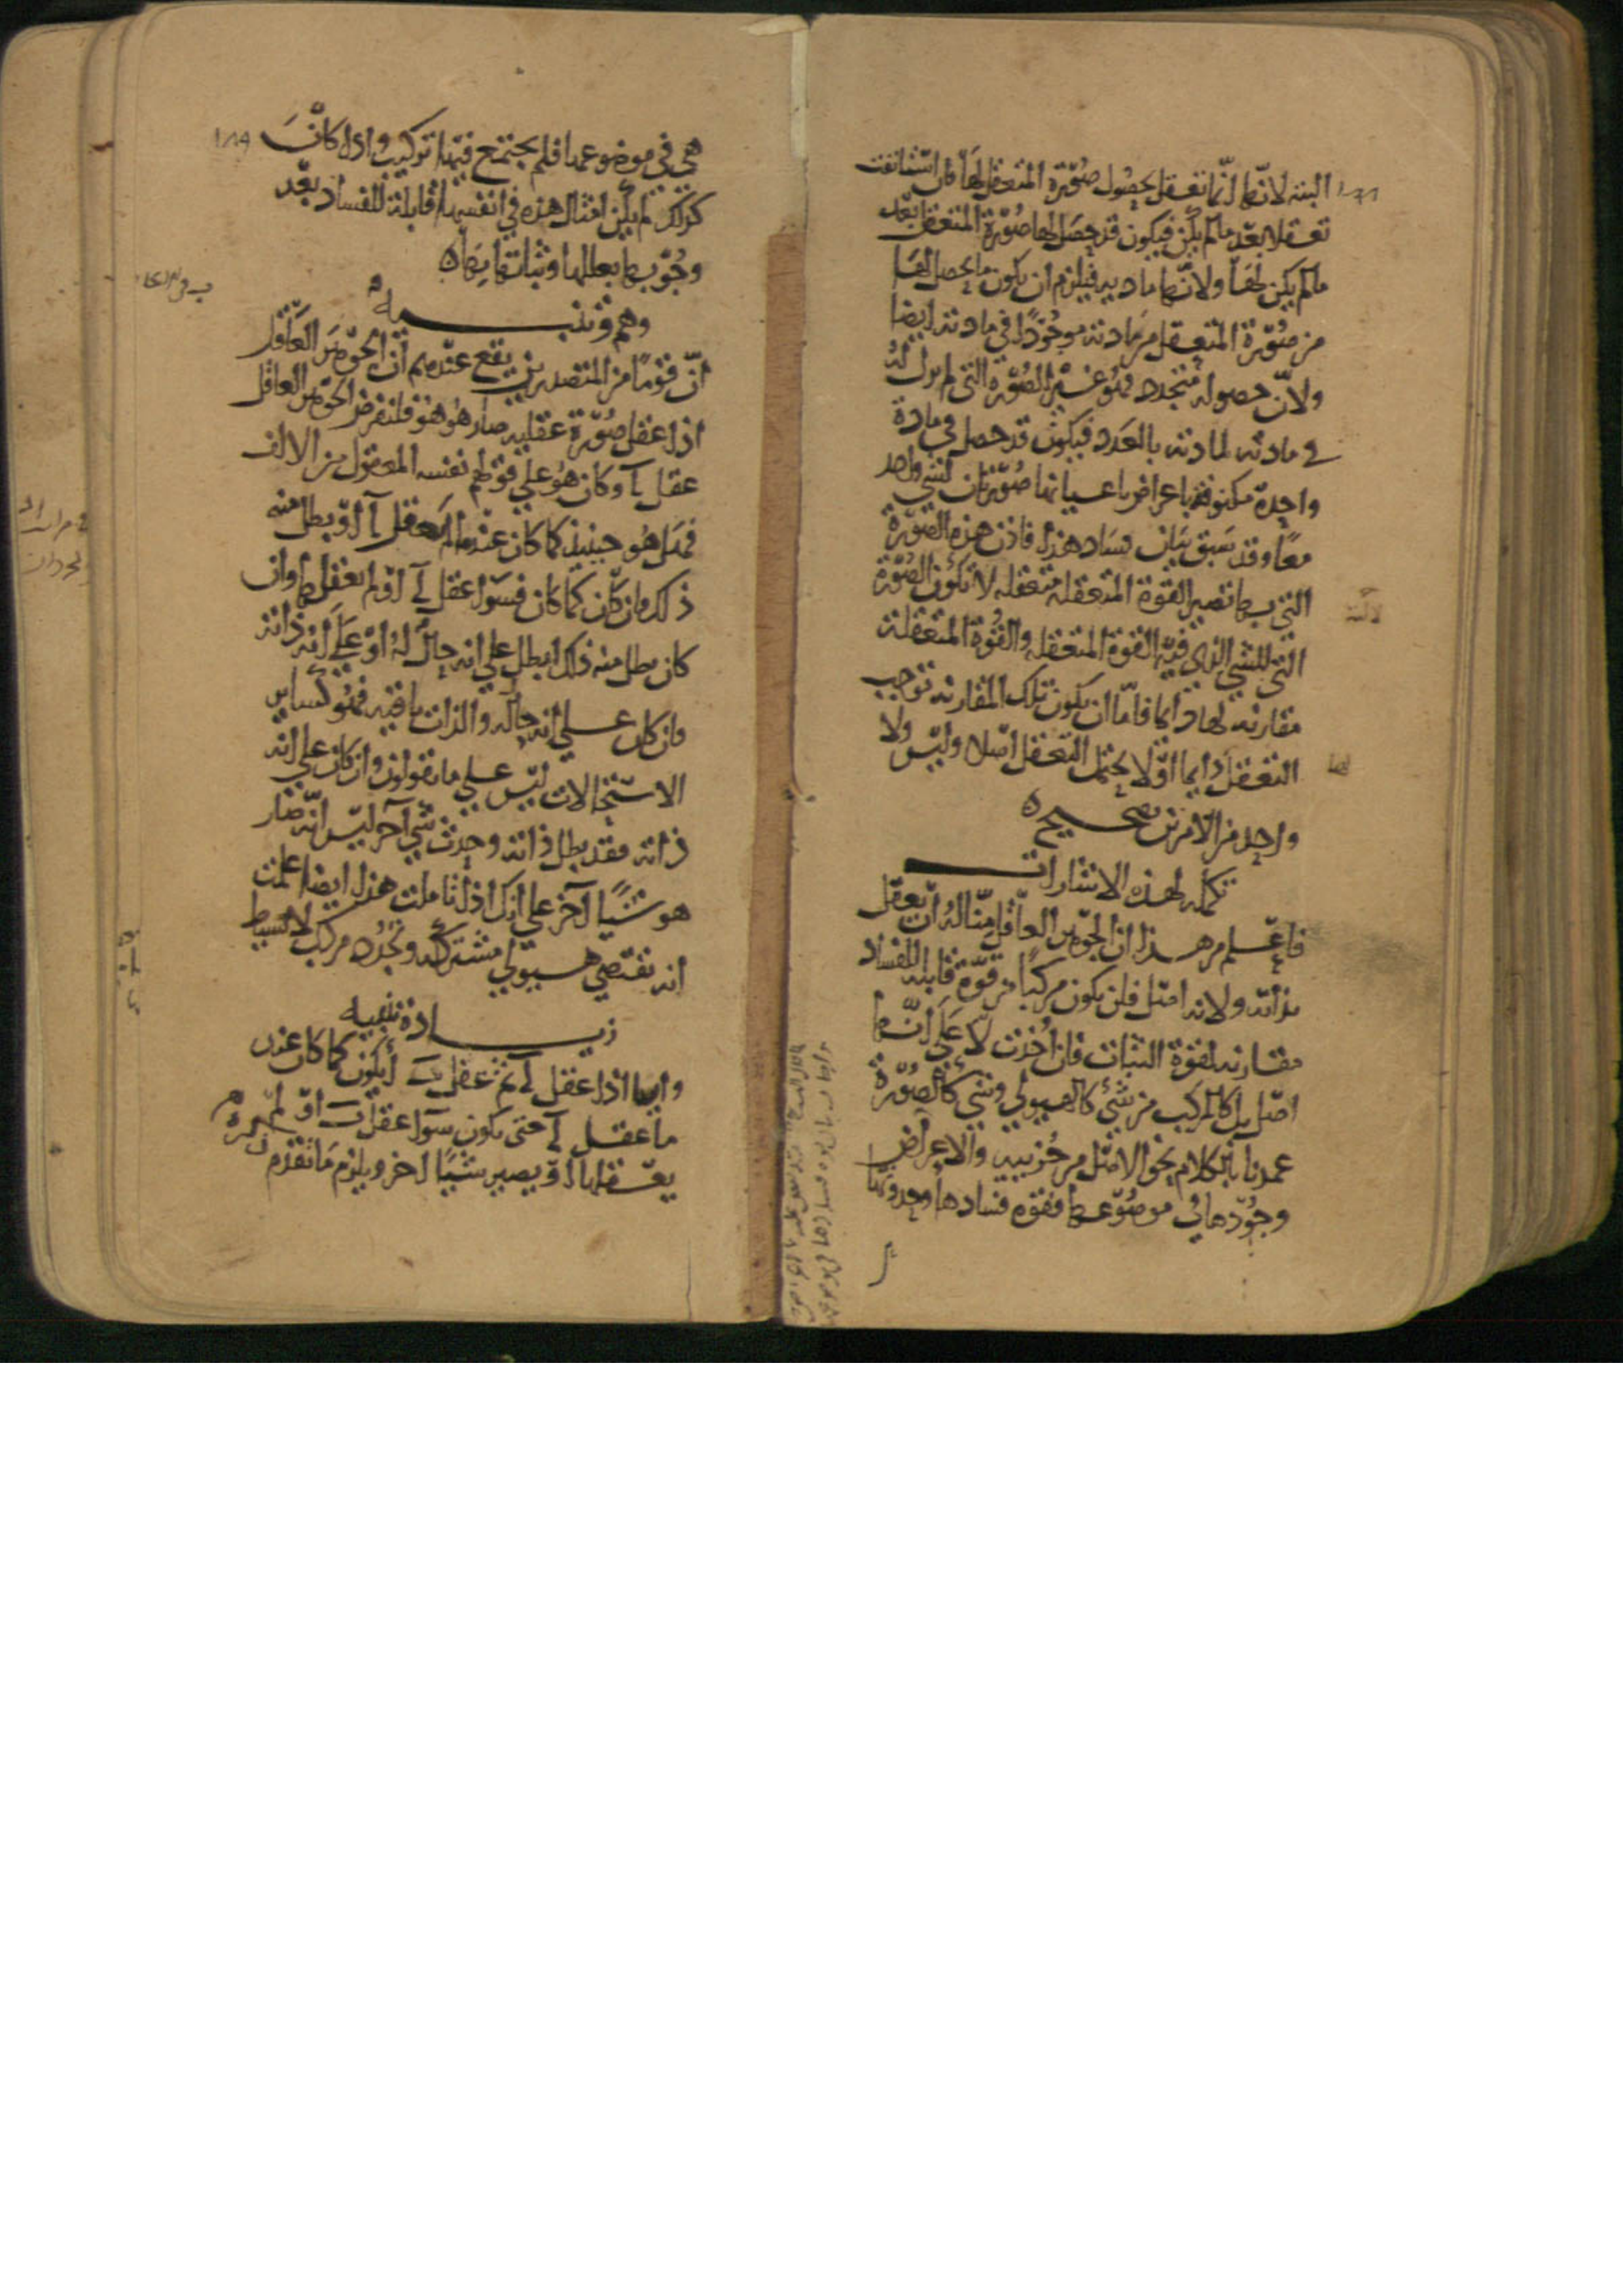 البتة لانها انما تتعقل بحصول صورة المتعقل لها فان استانفت
تعقلا بعد ما لم يكن فيكون قد حصل لها صورة المتعقل بعد
ما لم يكن لها ولانها مادية فيلزم ان يكون ما يحصل لها
من صورة المتعقل من مادته موجودا في مادته ايضا
ولان حصوله متجدد فهو غير الصورة التي لم يزل له
في مادته لمادته بالعدد فيكون قد حصل في مادة
واحدة مكنوفة باعراض باعيانها صورتان لشي واحد
معا وقد سبق بيان فساد هذا فاذن هذه الصورة
التي بها تصير القوة المتعقلة متعقلة لا تكون الصورة
التي للشي الذي فيه القوة المتعقلة والقوة المتعقلة
مقارنة لها دايما فاما ان يكون تلك المقارنة توجب
التعقل دايما او لا يحتمل التعقل اصلا وليس ولا
واحد من الامرين بصحيح
تكملة لهذه الاشارات
فاعلم من هذا ان الجوهر العاقل منا له ان يعقل
بذاته ولانه اصل فلن يكون مركبا من قوة قابلة للفساد
مقارنة لقوة الثبات فان اخذت لا على انها
اصل بل كالمركب من شي كالهيولى وشي كالصورة
عمدنا بالكلام نحو الاصل من جزييه والاعراض
وجودها في موضوعها فقوة فسادها وحدوثها
١٨٩
هي في موضوعها فلم يجتمع فيها تركيب واذا كانت
كذلك لم يكن امثال هذه في انفسها قابلة للفساد بعد
وجوبها بعللها وثباتها بها
وهم وتنبيه
ان قوما من المتصدرين يقع عندهم ان الجوهر العاقل
اذا عقل صورة عقلية صار هو هو فلنفرض الجوهر العاقل
عقل آ وكان هو على قولهم نفسه المعقول من الالف
فهل هو حينيذ كما كان عندما لم يعقل آ او بطل منه
ذلك فان كان كما كان فسوا عقل آ او لم يعقلها وان
كان بطل منه ذلك ابطل على انه حال له او على انه ذاته
فان كان على انه حاله والذات باقية فهو كساير
الاستحالات ليس على ما يقولون وان كان على انه
ذاته فقد بطل ذاته وحدث شي آخر ليس انه صار
هو شيا آخر على انك اذا تاملت هذا ايضا علمت
انه يقتضي هيولى مشتركة وتجدد مركب لا بسيط
زيادة تنبيه
وايضا اذا عقل آ ثم عقل ب أيكون كما كان عند
ما عقل آ حتى يكون سوا عقل ب او لم
يعقلها او يصير شيا اخر ويلزم ما تقدم ذكره